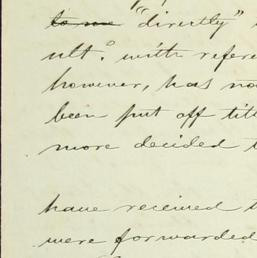 to me "directly"
ult.o with refere
however, has no
been put off till
more decided t
have received t
were forwarded